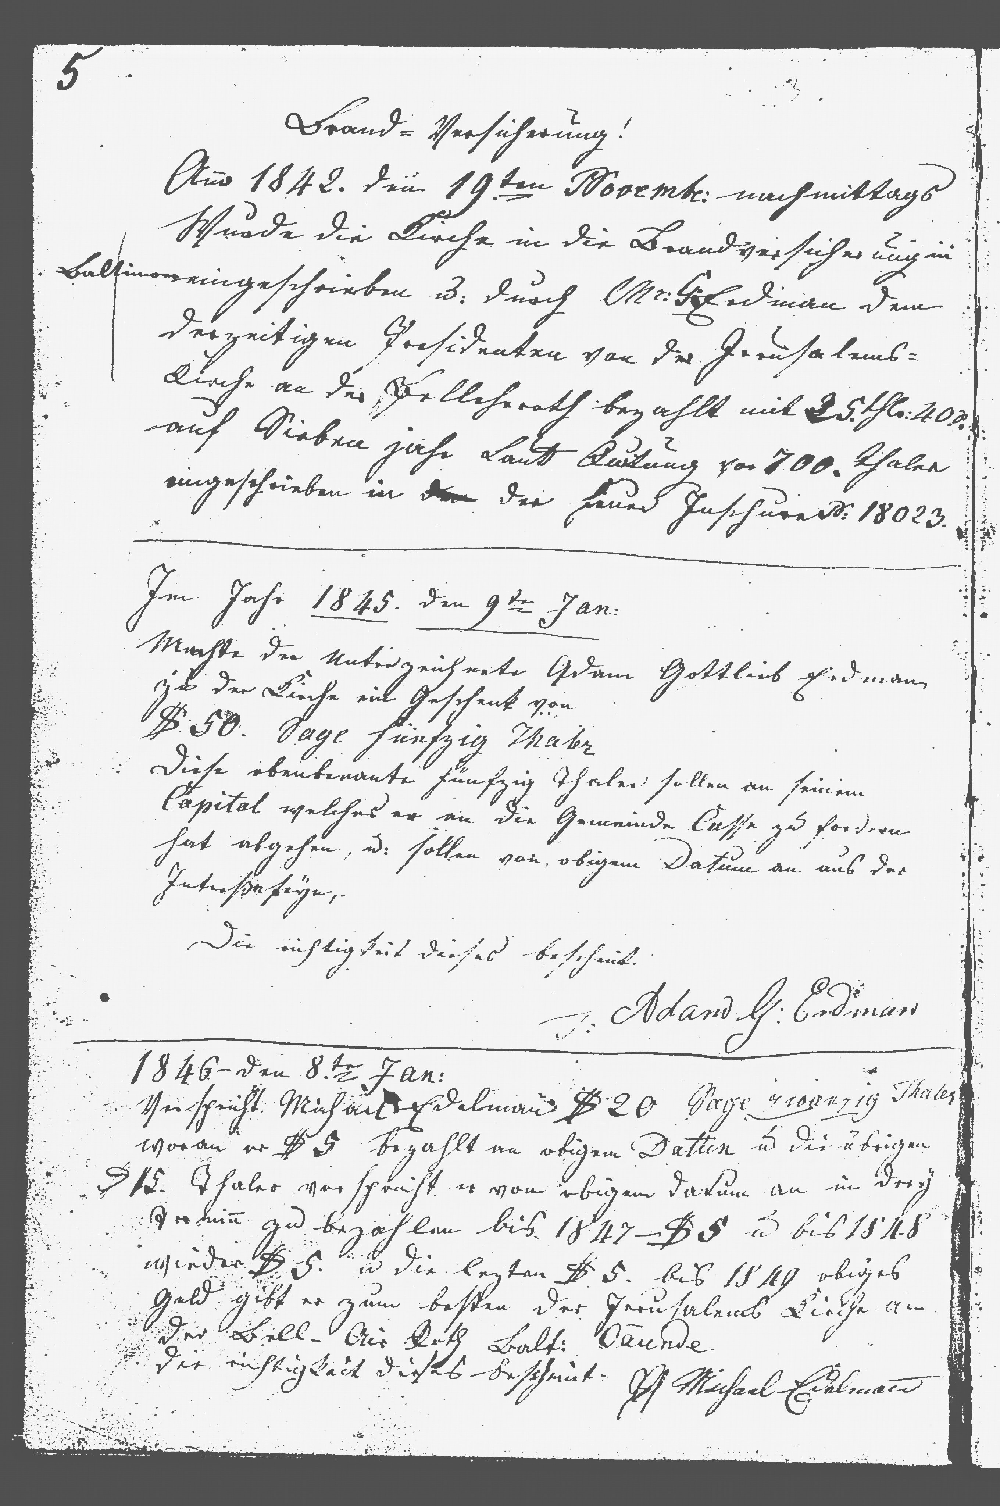 5
Brand-Versicherung!
Ano 1842. den 19ten Novembr: nachmittags
Wurde die Kirche in die Brandversicherung in
Baltimore eingeschrieben u: durch Mr: Erdman dem
derzeitigen Presidenten von der Jerusalems-
Kirche an der bezahlt mit 25. thlr: 40
auf Sieben jahr Lautt Quitung vor 700. Thaler
eingeschrieben in der Feuer Inschurens. 18023.
Im Jahr 1845. den 9te Jan:
Machte der Unterzeichnete Adam Gottlieb Erdman
zu der Kirche ein Geschenk von
$ 50. Sage fünfzig Thaler
Diese obenbenante fünfzig Thaler sollen an seinem
Capital welches er an die Gemeinde Casse zu fordern
hat abgehen, u: sollen von obigem Datum an aus der
Interesse seyn,
Die richtigkeit dieses bescheint.
Adam G: Erdman
1846 - den 8.te Jan:
Verspricht Michael Edelman $ 20 Sage zwanzig Thaler
woran er $ 5 bezahlt an obigem Datum u die übrigen
$ 15. Thaler verspricht er von obigem datum an in drey
Termin zu bezahlen bis 1847 - $ 5 u bis 1848
wieder $ 5. u die lezten $ 5. bis 1849 obiges
Geld gibt er zum besten der Jerusalems Kirche an
der Bell-Air Roth Balt: Caunde
die richtigkeit dieses bescheint.
Michael Edelmann